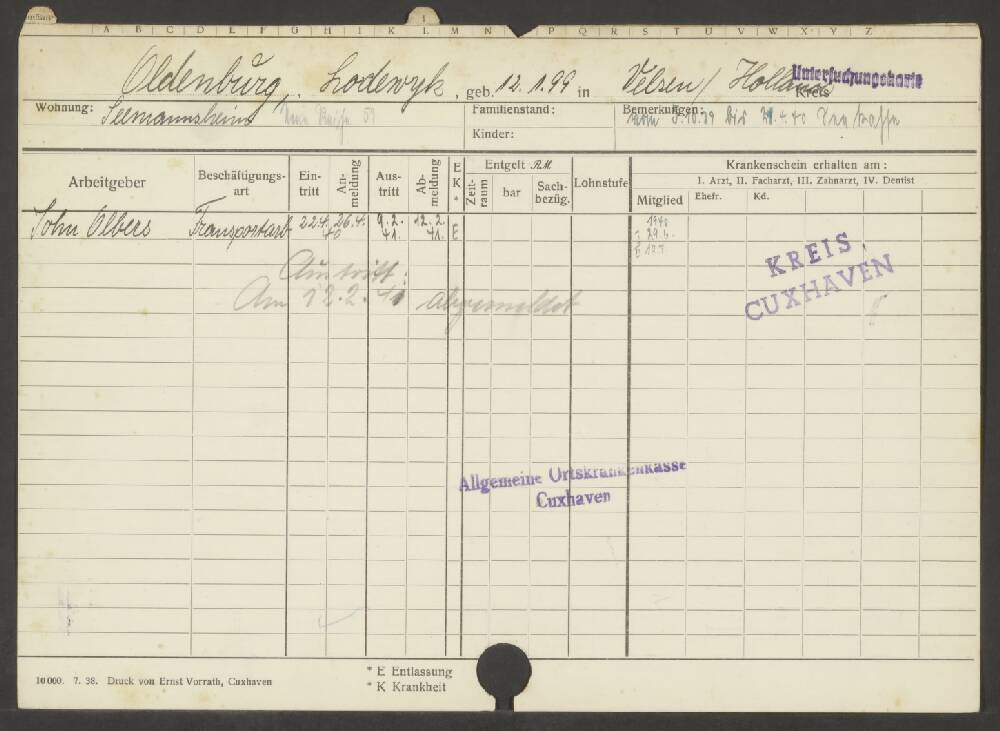 A B C D E F G H I K L M N P Q R S T U V W X Y Z
Oldenburg, Lodewyk, geb. 12.1.99 in Velsen/Holland Kreis
Untersuchungskarte
Wohnung: Seemannsheim Familienstand: Bemerkungen: vom 5.10.39 bis 21.4.40
Kinder:
Arbeitgeber Beschäftigungsart Eintritt Anmeldung Austritt Abmeldung E K * Entgelt RM Zeitraum bar Sachbezüg. Lohnstufe Krankenschein erhalten am:
I. Arzt, II. Facharzt, III. Zahnarzt, IV. Dentist
Mitglied Ehefr. Kd.
John Olbers Transportarb 22.4. 40 26.4. 9.2. 41. 12.2. 41. E 1940
Austritt:
Am 12.2.41 abgemeldet
KREIS
CUXHAVEN
Allgemeine Ortskrankenkasse
Cuxhaven
10000. 7. 38. Druck von Ernst Vorrath, Cuxhaven
* E Entlassung
* K Krankheit